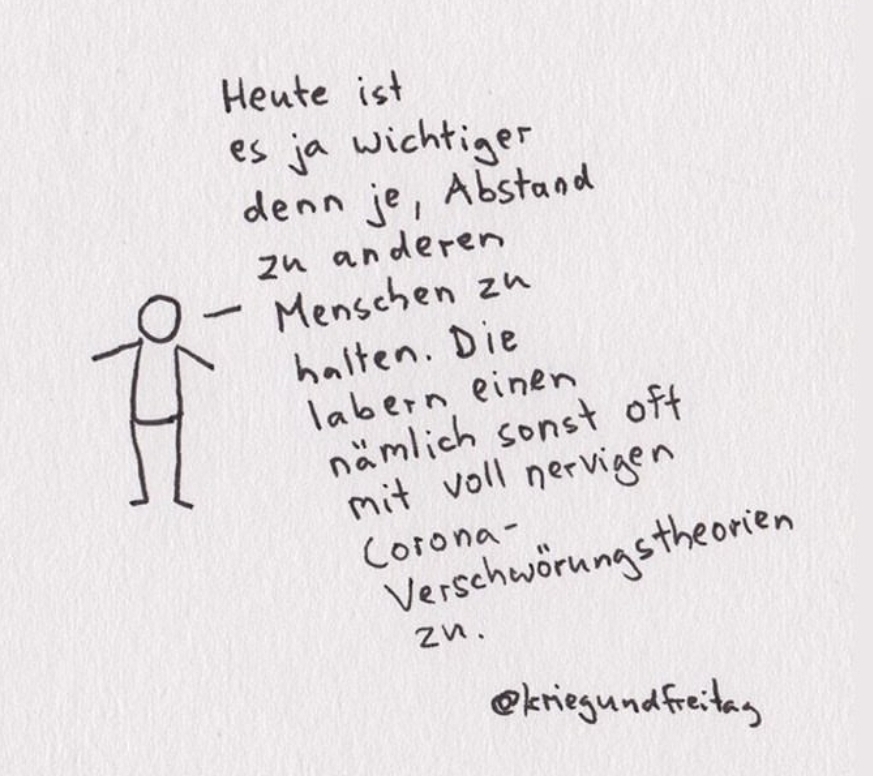 Heute ist
es ja wichtiger
denn je, Abstand
zu anderen
Menschen zu
halten. Die
labern einen
nämlich sonst oft
mit voll nervigen
Corona-
Verschwörungstheorien
zu.
@kriegundfreitag